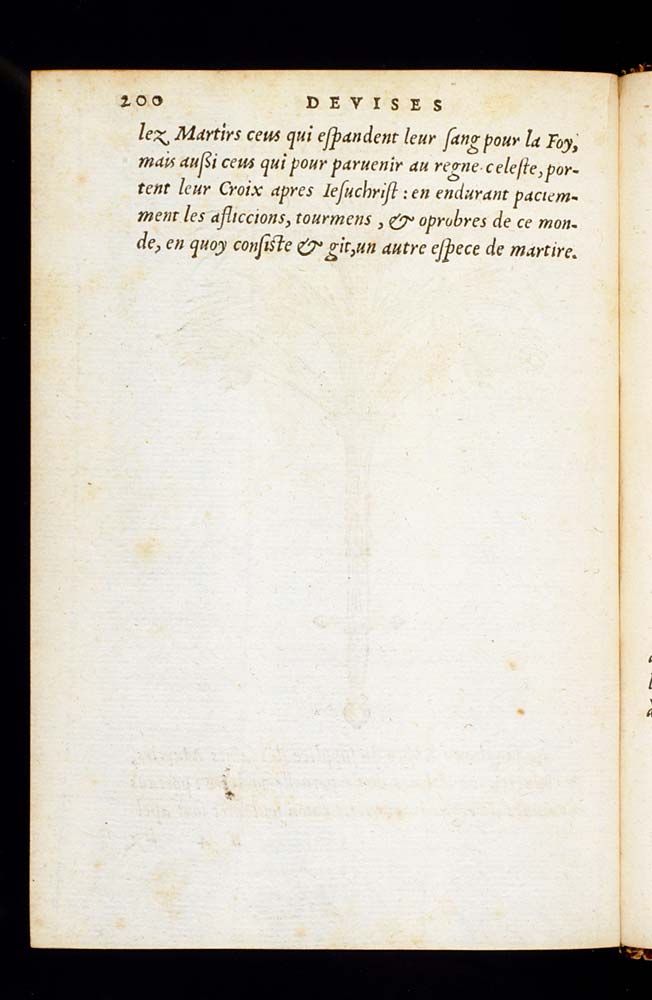 200 DEVISES
lez Martirs ceus qui eſpandent leur ſang pour la Foy,
mais außi ceus qui pour paruenir au regne celeſte, por-
tent leur Croix apres Ieſuchriſt : en endurant paciem-
ment les afliccions, tourmens, & oprobres de ce mon-
de, en quoy conſiste & git, un autre eſpece de martire.